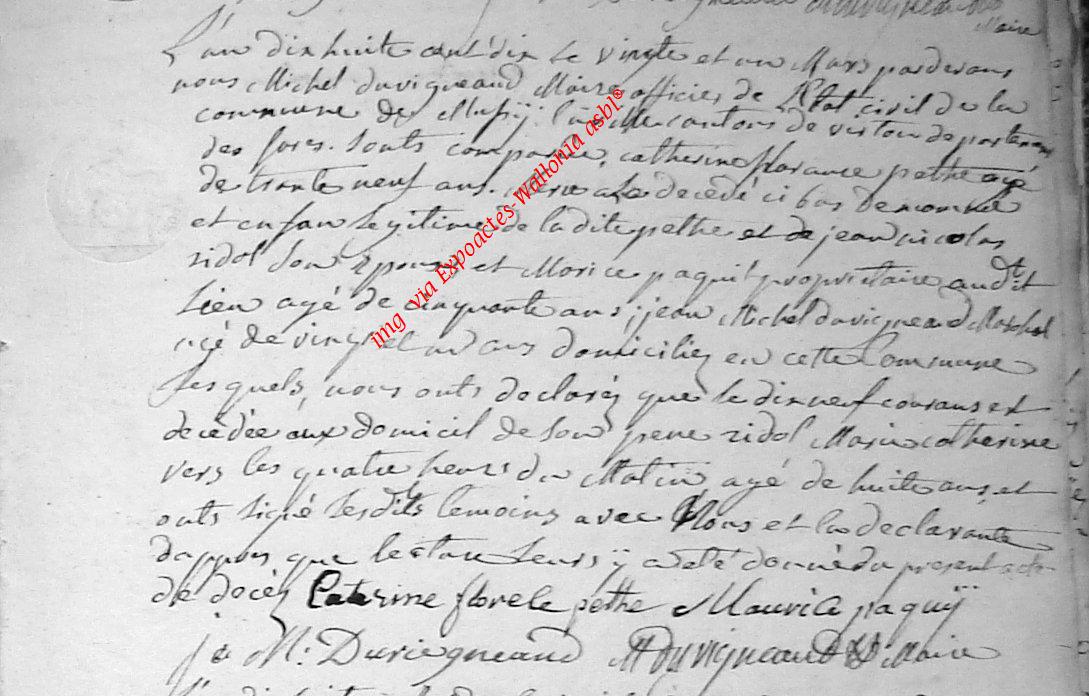 Maire
L'an dix huite cent dix le vingte et un Mars pardevans
nous Michel duvigneaud Maire officier de l'Etat civil de la
commune de Mussÿ la ville canton de virton departement
des fores. sonts comparue, catherine florance pethe agé
de trante neuf ans. Mere a la decédé ci bas denommé
et enfan legitime de la dite pethe et de jean nicolas
ridol son Epoux, et Morice paqui proprietaire audt
lieu agé de cinquante ans, jean Michel duvigneaud Marchal
agé de vingt et un ans domiciliez en cette Commune
lesquels, nous onts declaréz que le dixneuf courans est
decédée aux domicil de son pere ridol Marie catherine
vers les quatre heures du Matin agé de huite ans, et
onts signé lesdits temoins avec Nous et la declarante
dapprès que lecture leurs ÿ a été donné du present acte
de décès Caterine florele pethe Maurice paquÿ
je M. Duvigneaud M duvigneaud Maire
L'an dix huite
img via Expoactes-Wallonia asbl®